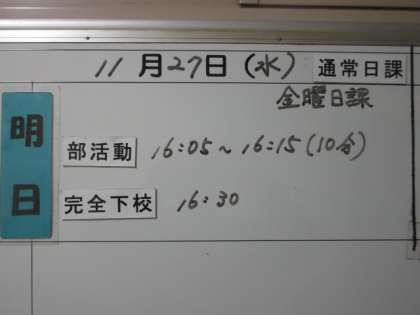 11月27日(水) 通常日課
金曜日課
明日
部活動 16:05~16:15(10分)
完全下校 16:30